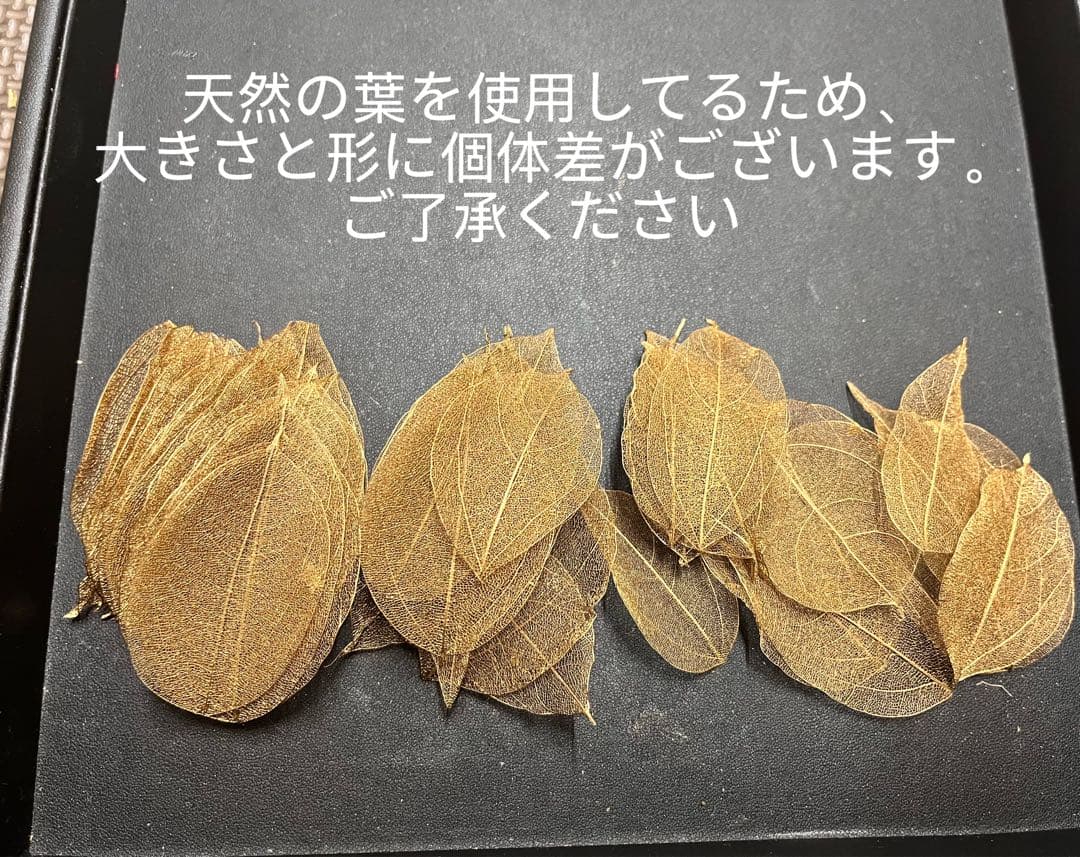 天然の葉を使用してるため、
大きさと形に個体差がございます。
ご了承ください